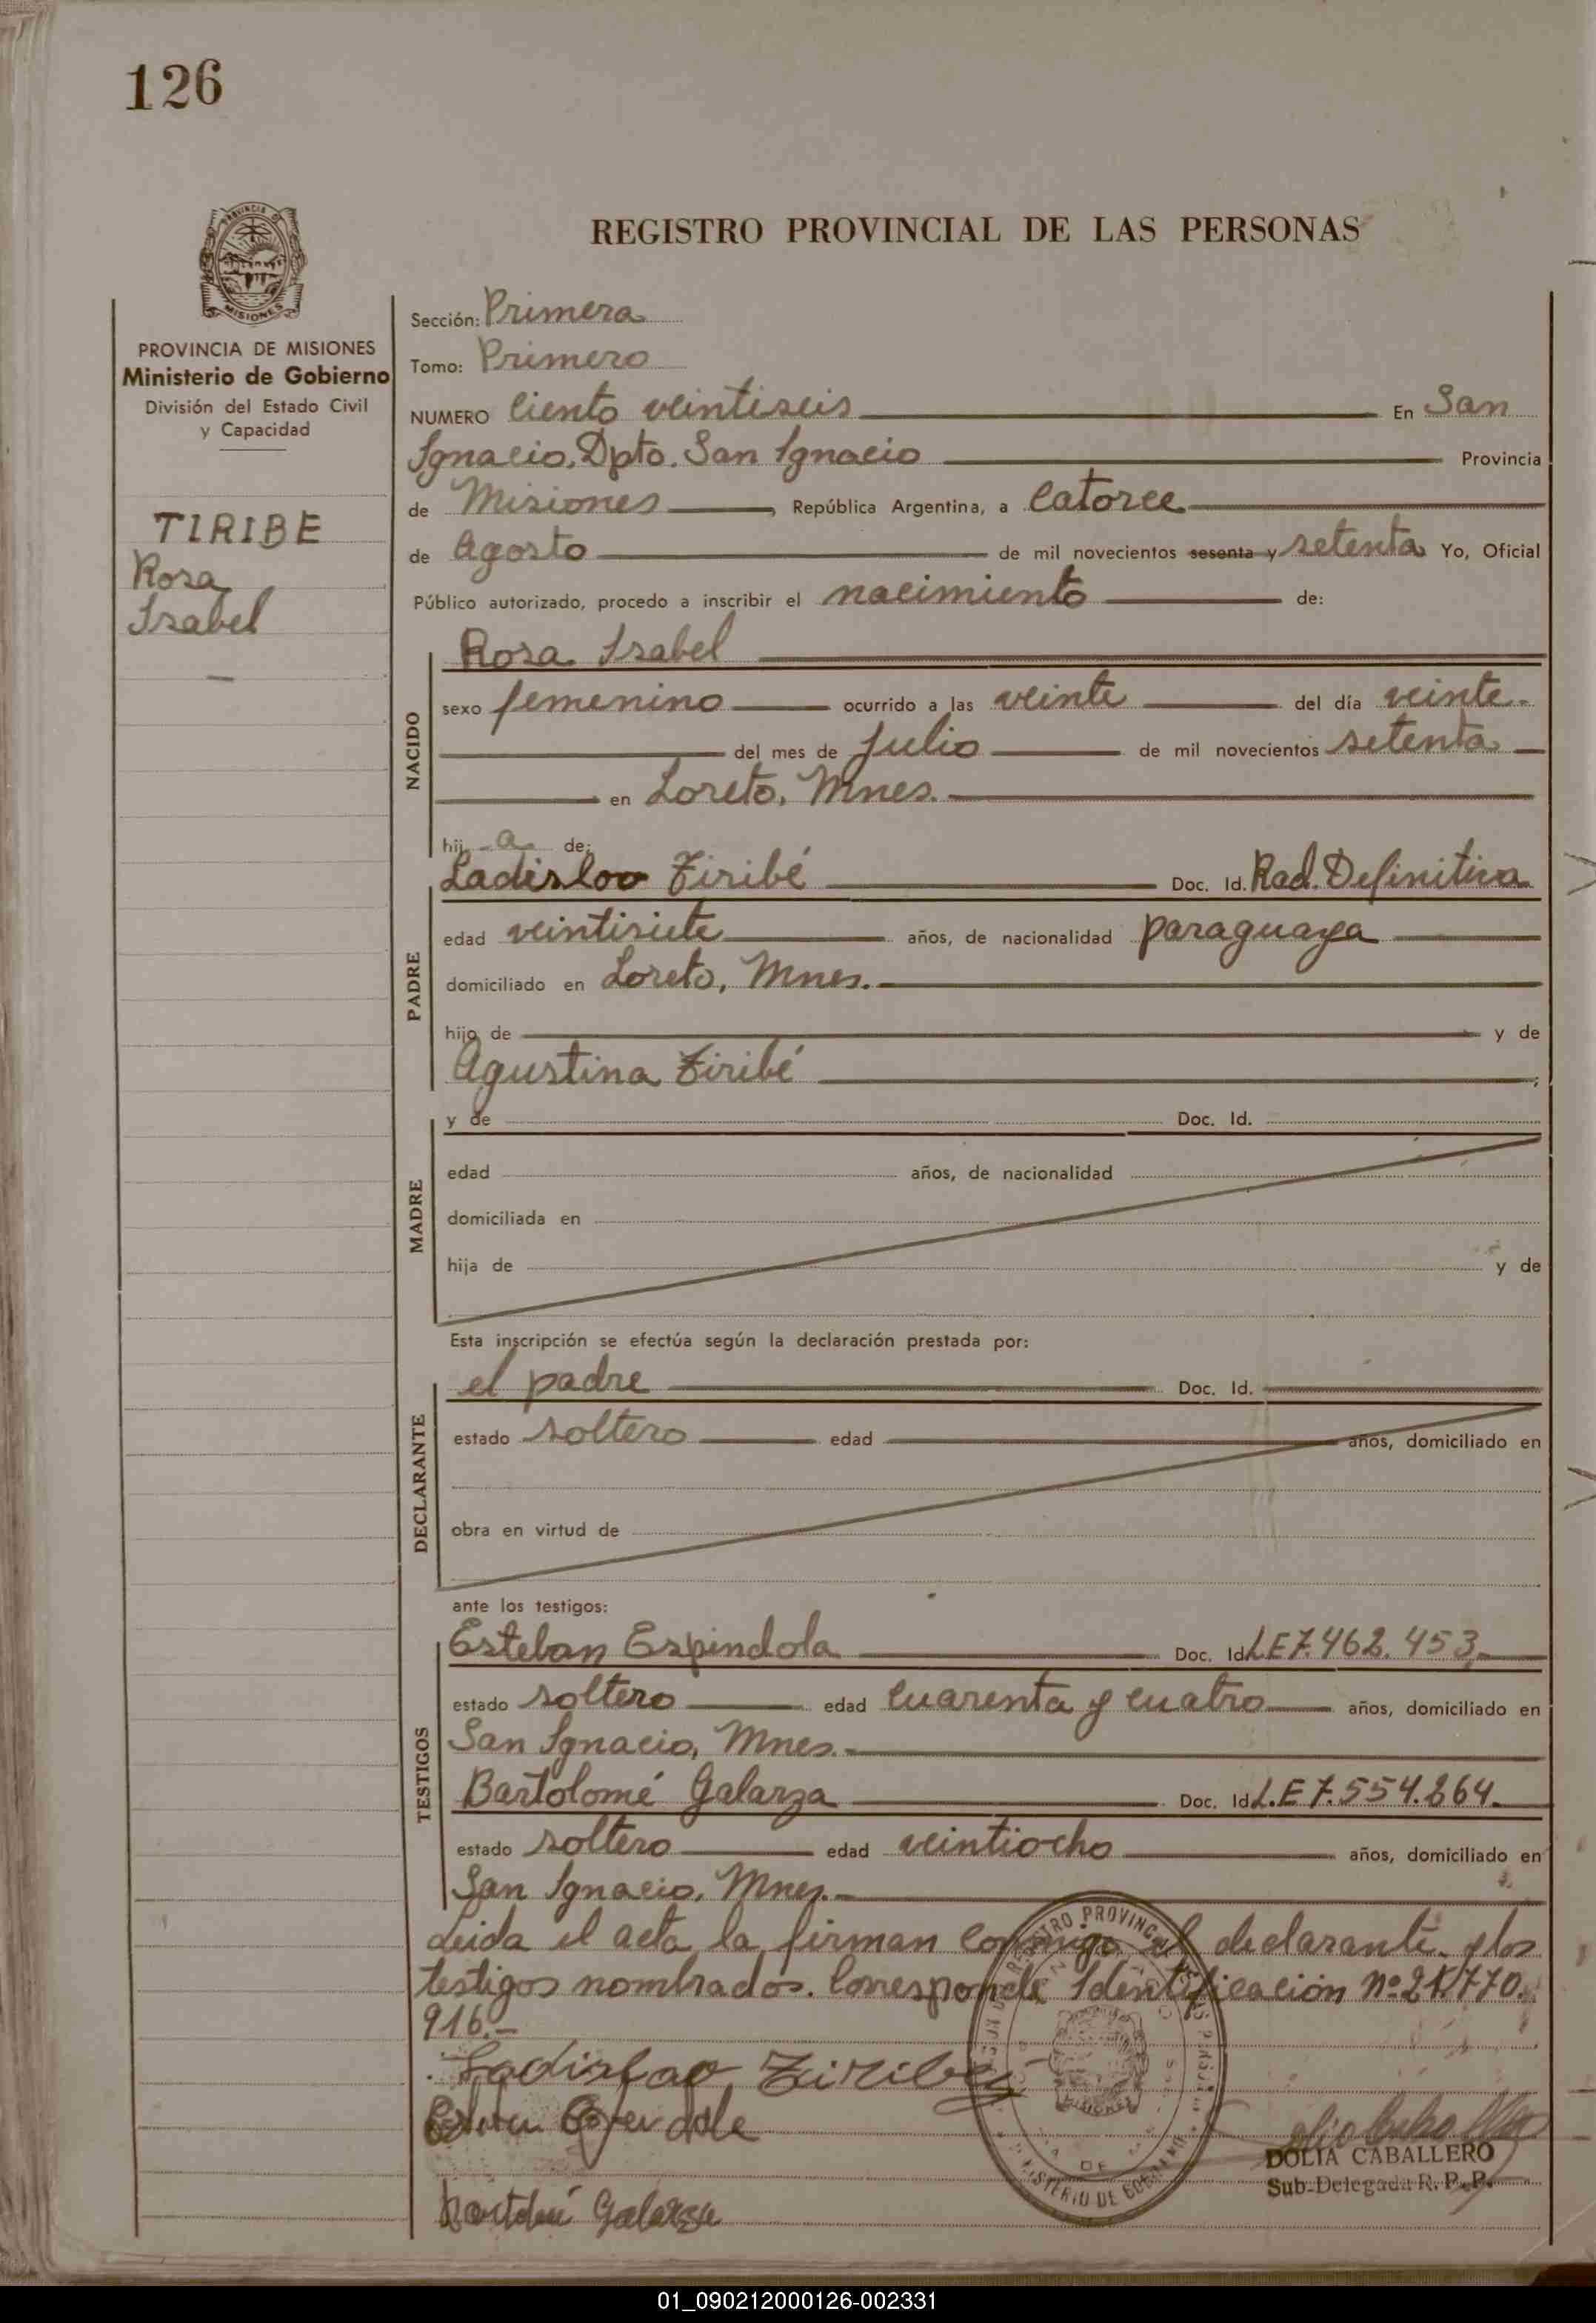 126
REGISTRO PROVINCIAL DE LAS PERSONAS
MISIONES
PROVINCIA DE MISIONES
Ministerio de Gobierno
División del Estado Civil
y Capacidad
TIRIBE
Rosa
Isabel
Sección: Primera
Tomo: Primero
NUMERO Ciento veintiseis En San
Ignacio, Dpto. San Ignacio Provincia
de Misiones, República Argentina, a Catorce
de Agosto de mil novecientos sesenta y setenta Yo, Oficial
Público autorizado, procedo a inscribir el nacimiento de:
NACIDO
Rosa Isabel
sexo femenino ocurrido a las veinte del día veinte
del mes de Julio de mil novecientos setenta
en Loreto, Mnes.
hij a de:
PADRE
Ladislao Tiribé Doc. Id. Rad. Definitiva
edad veintisiete años, de nacionalidad paraguaya
domiciliado en Loreto, Mnes.
hijo de y de
Agustina Tiribé ;
MADRE
y de Doc. Id.
edad años, de nacionalidad
domiciliada en
hija de y de
Esta inscripción se efectúa según la declaración prestada por:
DECLARANTE
el padre Doc. Id.
estado soltero edad años, domiciliado en
obra en virtud de
ante los testigos:
TESTIGOS
Esteban Espindola Doc. Id L.E 7.462.453
estado soltero edad cuarenta y cuatro años, domiciliado en
San Ignacio, Mnes.
Bartolomé Galarza Doc. Id L.E 7.554.264
estado soltero edad veintiocho años, domiciliado en
San Ignacio, Mnes.
Leida el acta, la firman conmigo el declarante y los
testigos nombrados. Corresponde Identificación nº 21.770.
916.-
Ladislao Tiribe
Galarza
DOLIA CABALLERO
Sub-Delegada R. P. P.
MINISTERIO DE GOBIERNO
01_090212000126-002331